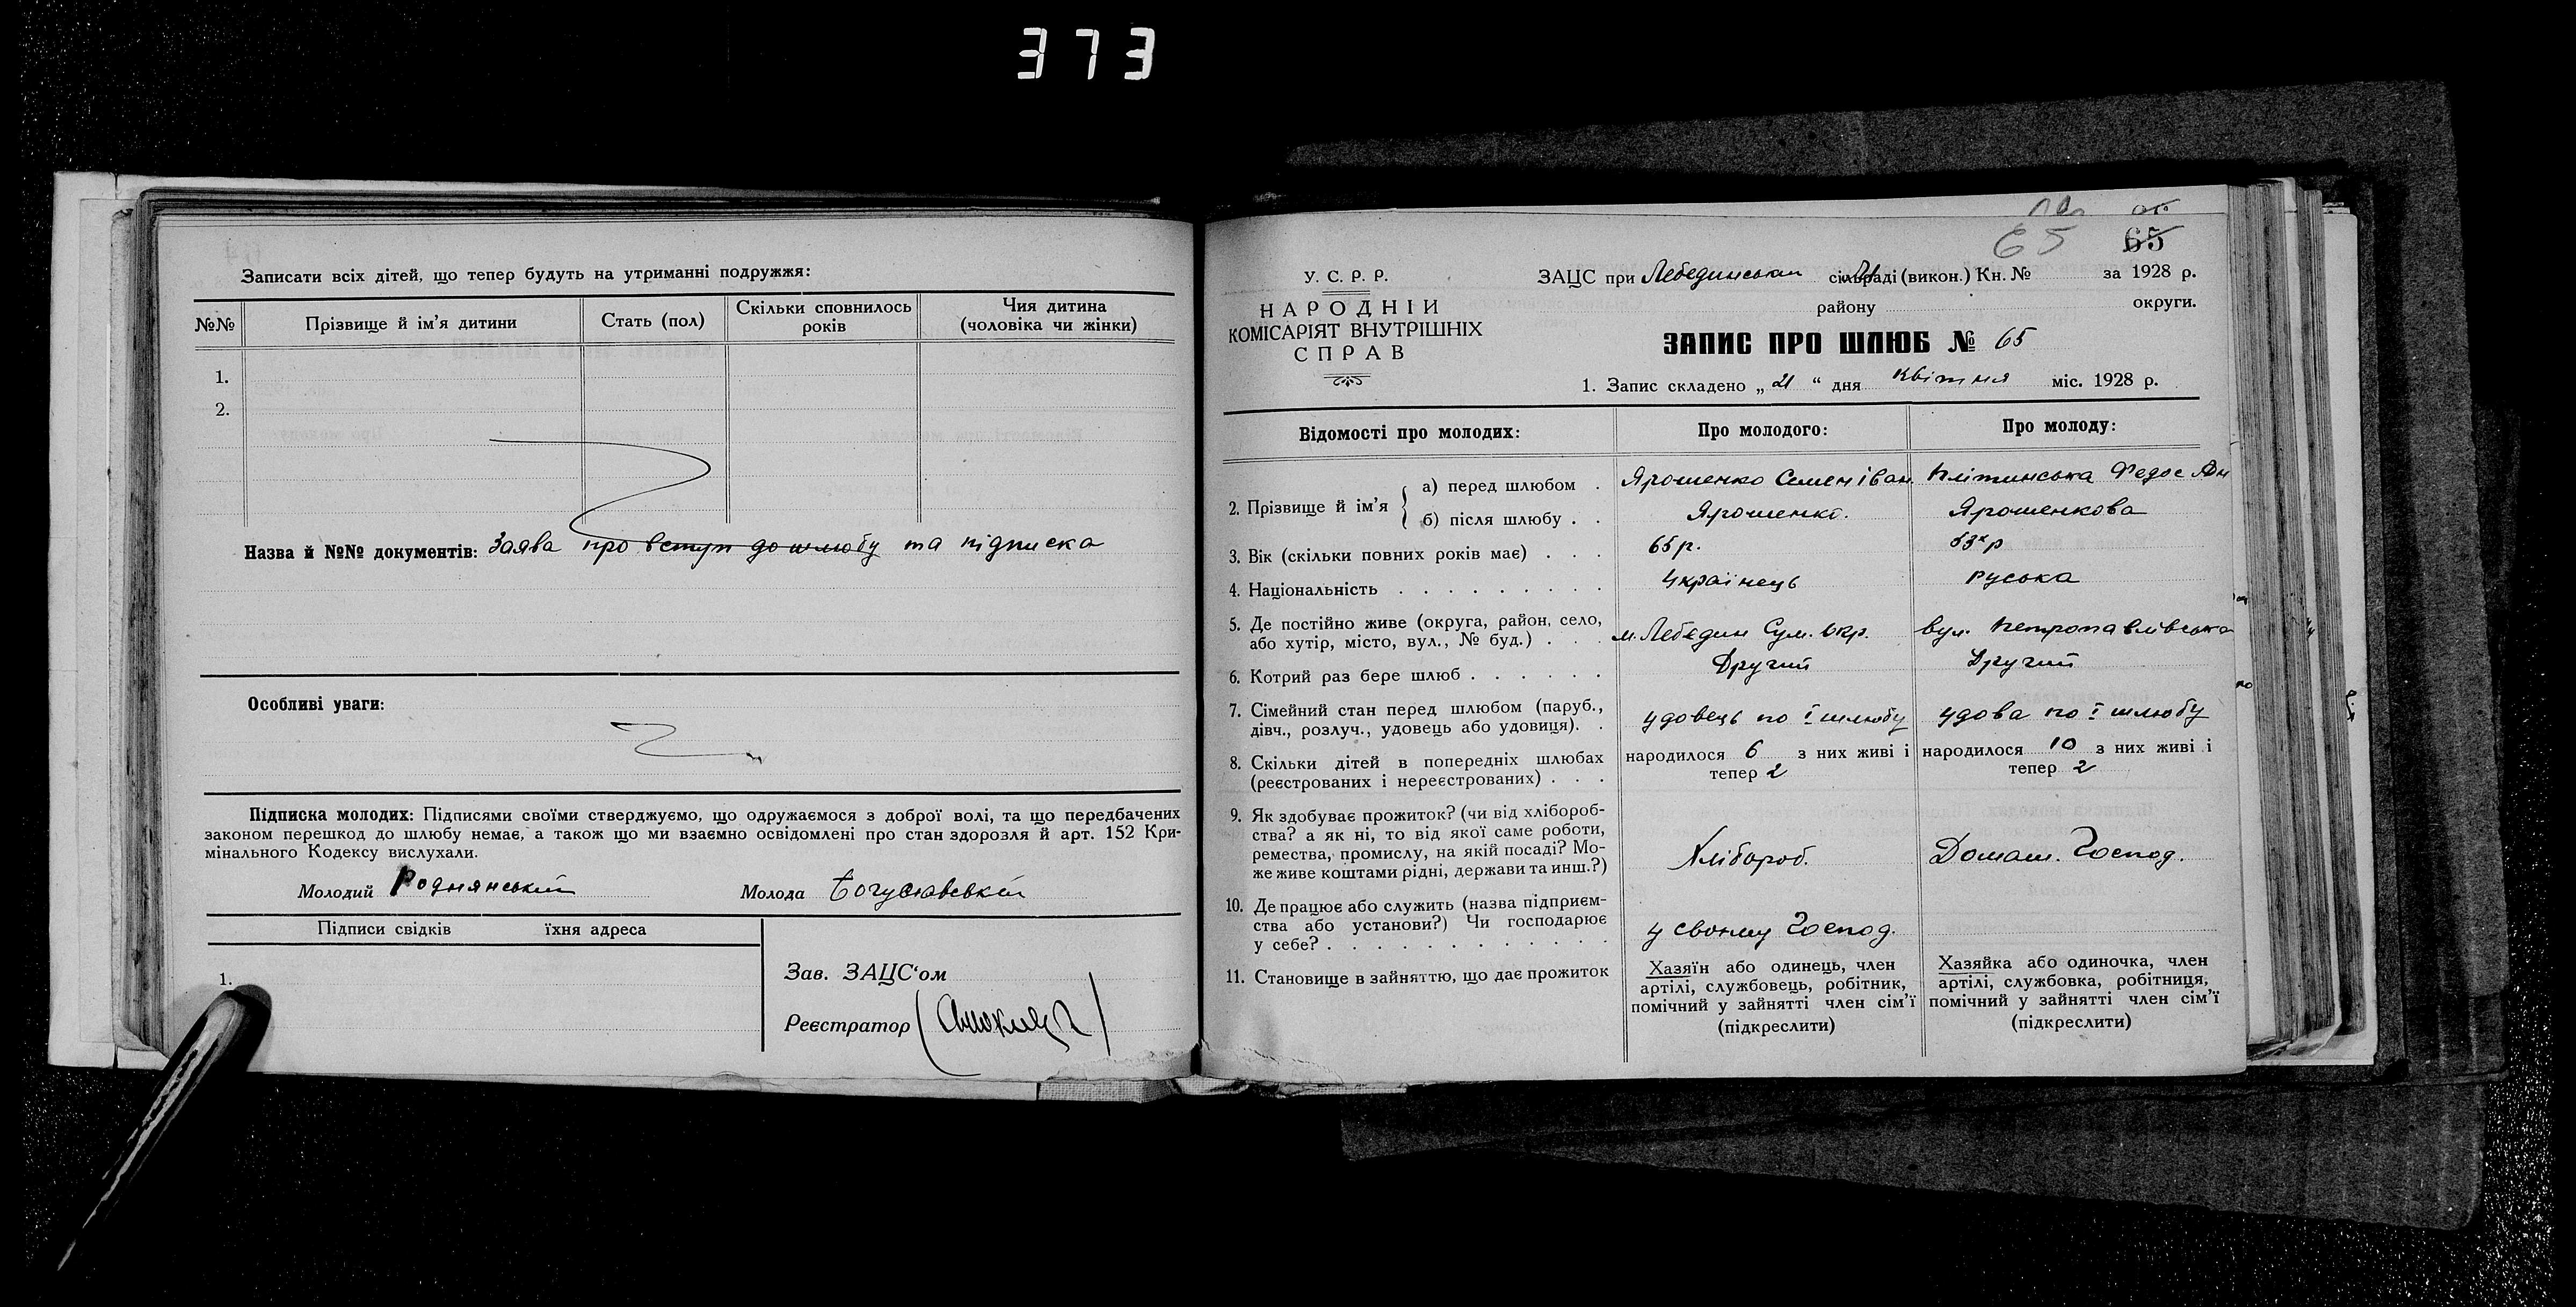 373
Записати всіх дітей, що тепер будуть на утриманні подружжя:
№№ Прізвище й ім'я дитини Стать (пол) Скільки сповнилось років Чия дитина (чоловіка чи жінки)
1.
2.
Назва й №№ документів: Заява про вступ до шлюбу та підписка
Особливі уваги:
Підписка молодих: Підписями своїми стверджуємо, що одружаємося з доброї волі, та що передбачених
законом перешкод до шлюбу немає, а також що ми взаємно освідомлені про стан здоровля й арт. 152 Кри-
мінального Кодексу вислухали.
Молодий Роднянський Молода Богуславській
Підписи свідків їхня адреса
1.
Зав. ЗАЦС'ом
Реєстратор
65 65
У. С. Р. Р.
НАРОДНІЙ
КОМІСАРІЯТ ВНУТРІШНІХ
СПРАВ
ЗАЦС при Лебединськім сільраді (викон.) Кн. № за 1928 р.
району округи.
ЗАПИС ПРО ШЛЮБ № 65
1. Запис складено „ 21 “ дня квітня міс. 1928 р.
Відомості про молодих: Про молодого: Про молоду:
2. Прізвище й ім'я
а) перед шлюбом . Ярошенко Семен Іван. Клітинська Федос
б) після шлюбу . . Ярошенко. Ярошенкова
3. Вік (скільки повних років має) . . . 65 р. 53 р
4. Національність . . . . . . . . . Українець руська
5. Де постійно живе (округа, район, село,
або хутір, місто, вул., № буд.) . . . м. Лебедин Сум. окр. вул. Петропавлівська
6. Котрий раз бере шлюб . . . . . . Другий Другий
7. Сімейний стан перед шлюбом (паруб.,
дівч., розлуч., удовець або удовиця). . удовець по I шлюбу удова по I шлюбу
8. Скільки дітей в попередніх шлюбах
(реєстрованих і нереєстрованих) . . .
народилося 6 з них живі і
тепер 2
народилося 10 з них живі і
тепер 2
9. Як здобуває прожиток? (чи від хлібороб-
ства? а як ні, то від якої саме роботи,
ремества, промислу, на якій посаді? Мо-
же живе коштами рідні, держави та инш.?)
Хлібороб. Домаш. Господ.
10. Де працює або служить (назва підприєм-
ства або установи?) Чи господарює
у себе? . . . . . . . . . . . . .
у своєму Господ.
11. Становище в зайняттю, що дає прожиток
Хазяїн або одинець, член
артілі, службовець, робітник,
помічний у зайнятті член сім'ї
(підкреслити)
Хазяйка або одиночка, член
артілі, службовка, робітниця,
помічний у зайнятті член сім'ї
(підкреслити)